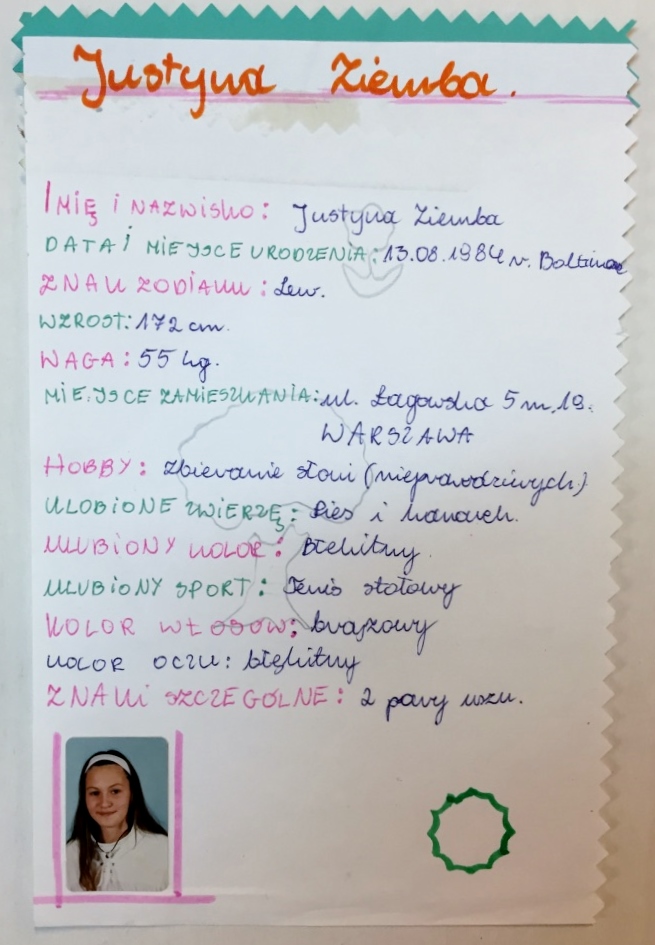 Justyna Ziemba.
IMIĘ I NAZWISKO: Justyna Ziemba
DATA I MIEJSCE URODZENIA: 13.08.1984 r. Baltimor
ZNAK ZODIAKU: Lew.
WZROST: 172 cm.
WAGA: 55 kg.
MIEJSCE ZAMIESZKANIA: ul. Łagowska 5 m. 19.
WARSZAWA
HOBBY: Zbieranie słoni (nieprawdziwych)
ULOBIONE ZWIERZĘ: Pies i kanarek.
ULUBIONY KOLOR: Błękitny.
ULUBIONY SPORT: Tenis stołowy
KOLOR WŁOSÓW: brązowy
KOLOR OCZU: błękitny
ZNAKI SZCZEGÓLNE: 2 pary uszu.